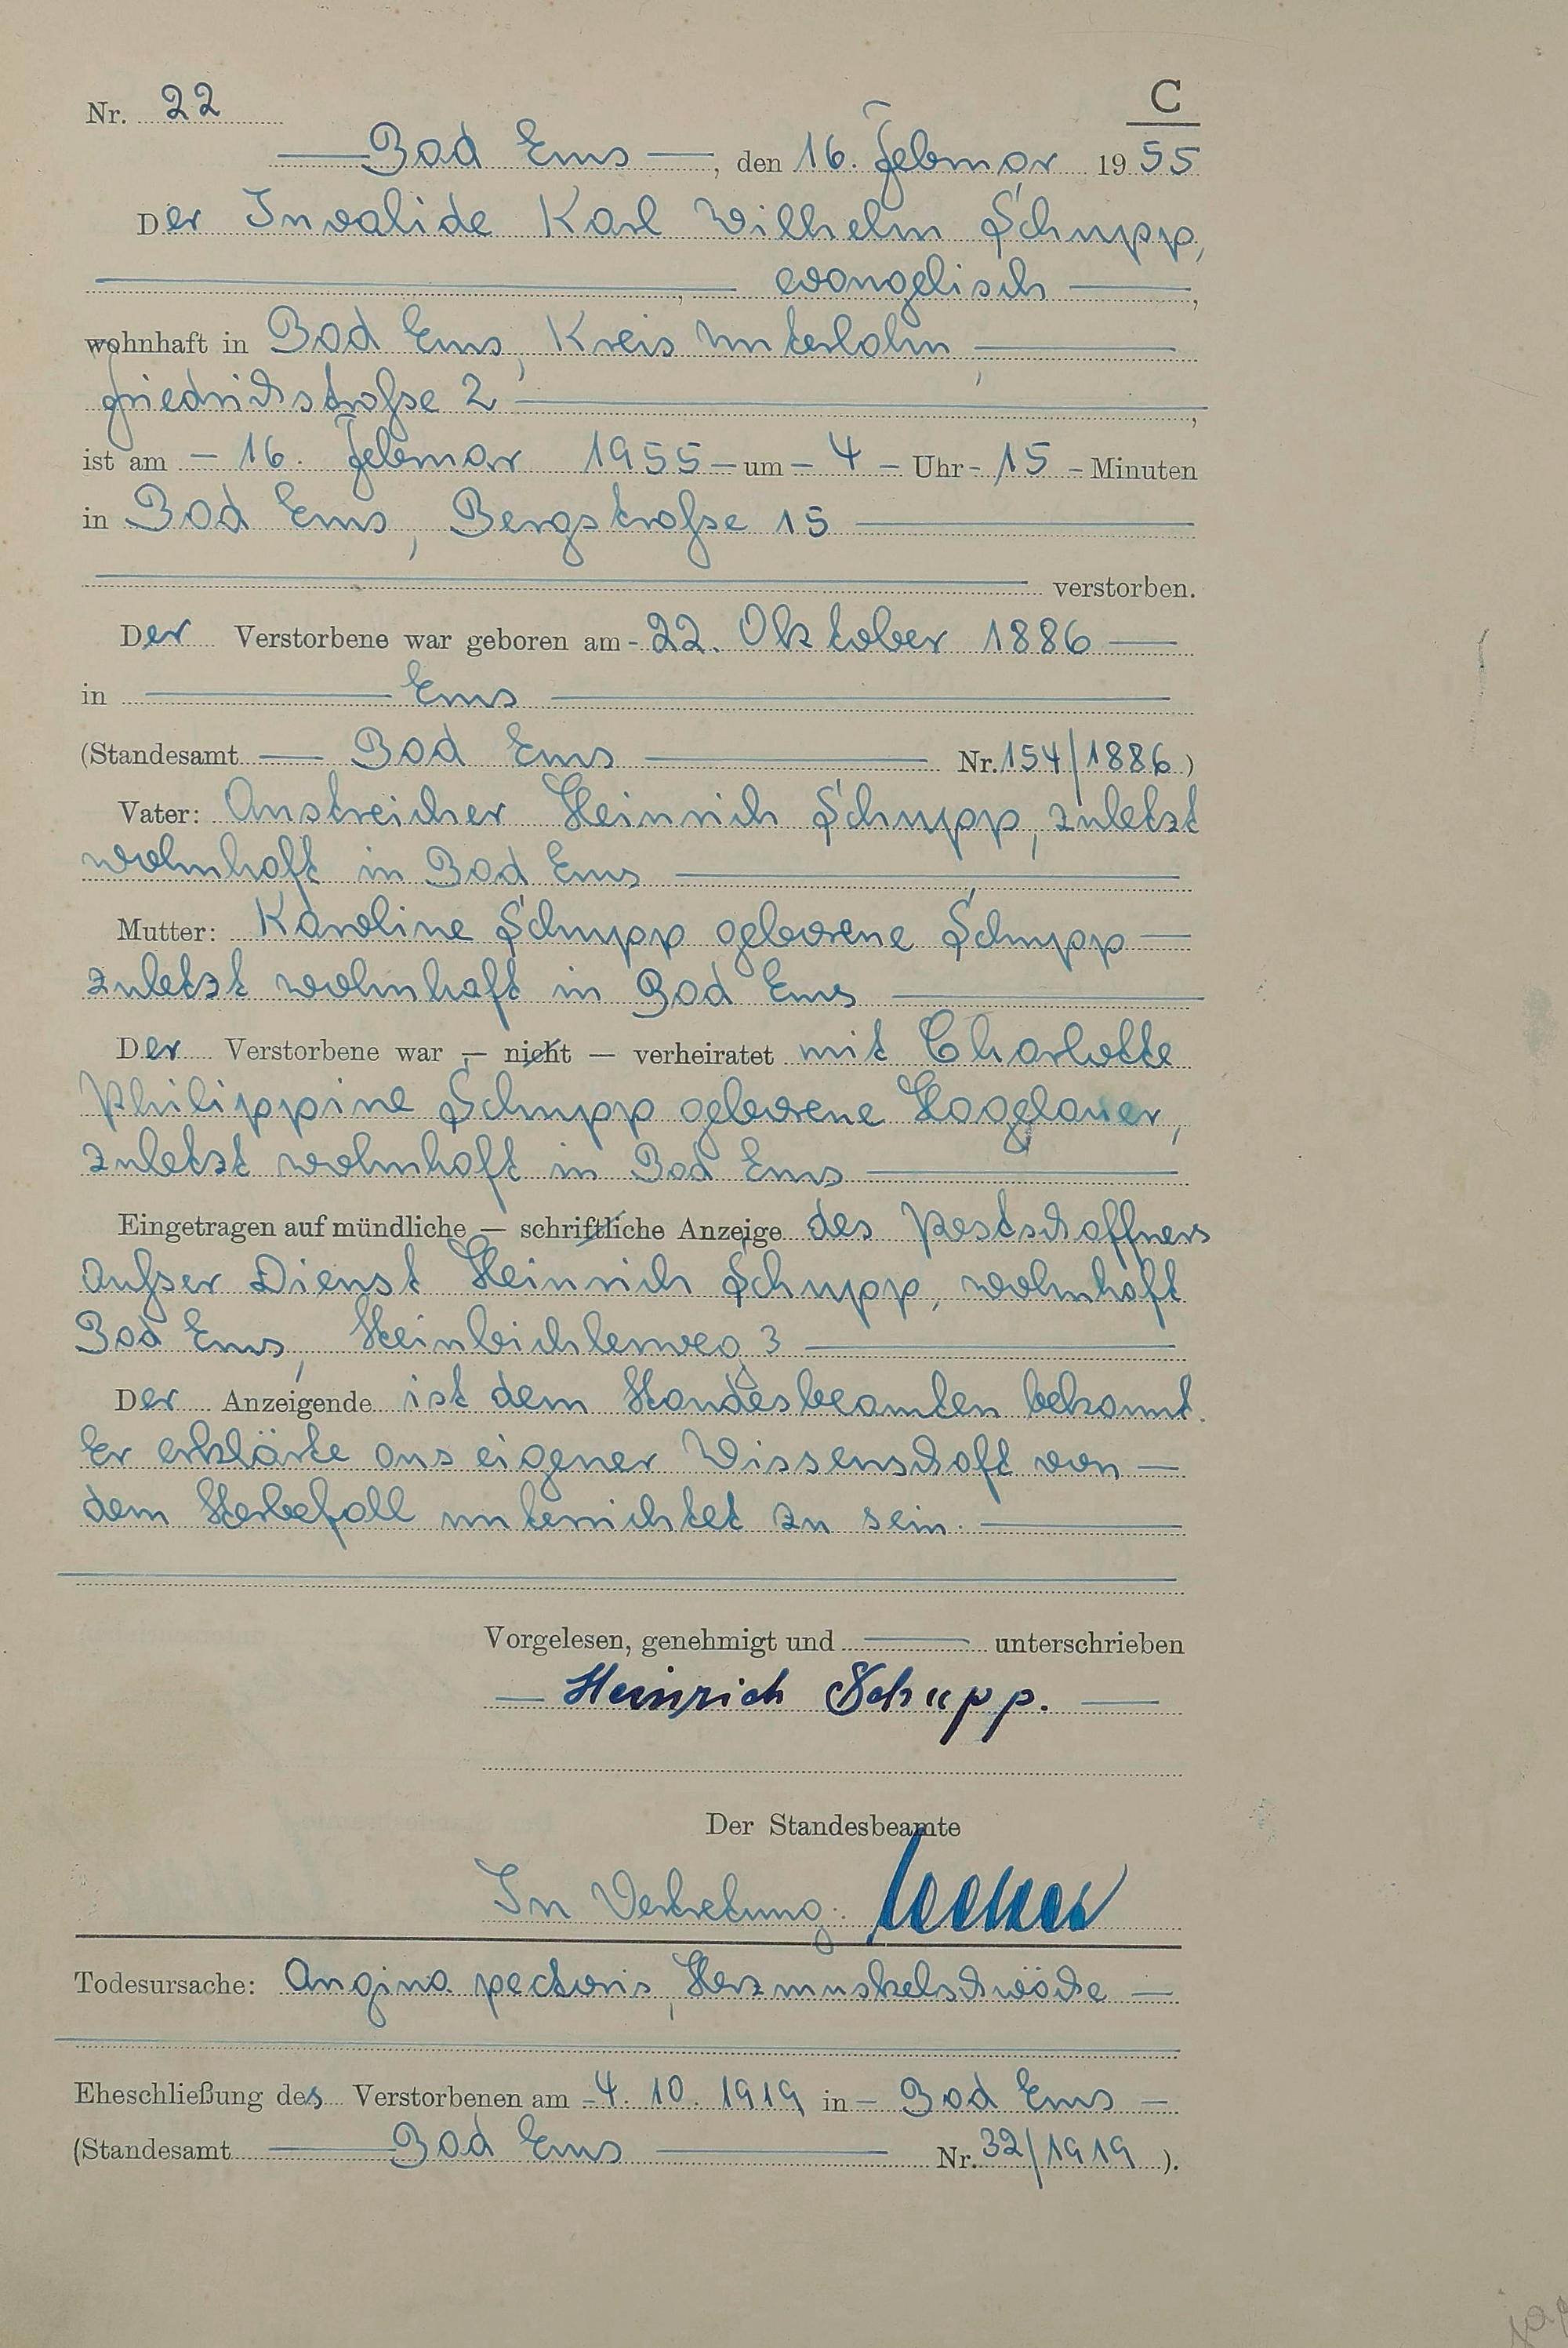 Nr. 22
C
Bad Ems, den 16. Februar 1955
Der Invalide Karl Wilhelm Schupp,
, evangelisch ,
wohnhaft in Bad Ems, Kreis Unterlahn,
Friedrichstraße 2 ,
ist am - 16. Februar 1955 - um - 4 - Uhr - 15 - Minuten
in Bad Ems, Bergstraße 15
verstorben.
Der Verstorbene war geboren am - 22. Oktober 1886
in Ems
(Standesamt Bad Ems Nr. 154/1886)
Vater: Anstreicher Heinrich Schupp, zuletzt
wohnhaft in Bad Ems
Mutter: Karoline Schupp geborene Schupp,
zuletzt wohnhaft in Bad Ems
Der Verstorbene war — nicht — verheiratet mit Charlotte
Philippine Schupp geborene Haxelauer,
zuletzt wohnhaft in Bad Ems
Eingetragen auf mündliche — schriftliche Anzeige des Postschaffners
außer Dienst Heinrich Schupp, wohnhaft
Bad Ems, 3
Der Anzeigende ist dem Standesbeamten bekannt.
Er erklärte aus eigener Wissenschaft von
dem Sterbefall unterrichtet zu sein.
Vorgelesen, genehmigt und unterschrieben
Heinrich Schupp.
Der Standesbeamte
In Vertretung:
Todesursache: Angina pectoris, Herzmuskelschwäche
Eheschließung des Verstorbenen am - 4. 10. 1919 in - Bad Ems -
(Standesamt Bad Ems Nr. 32/1919).